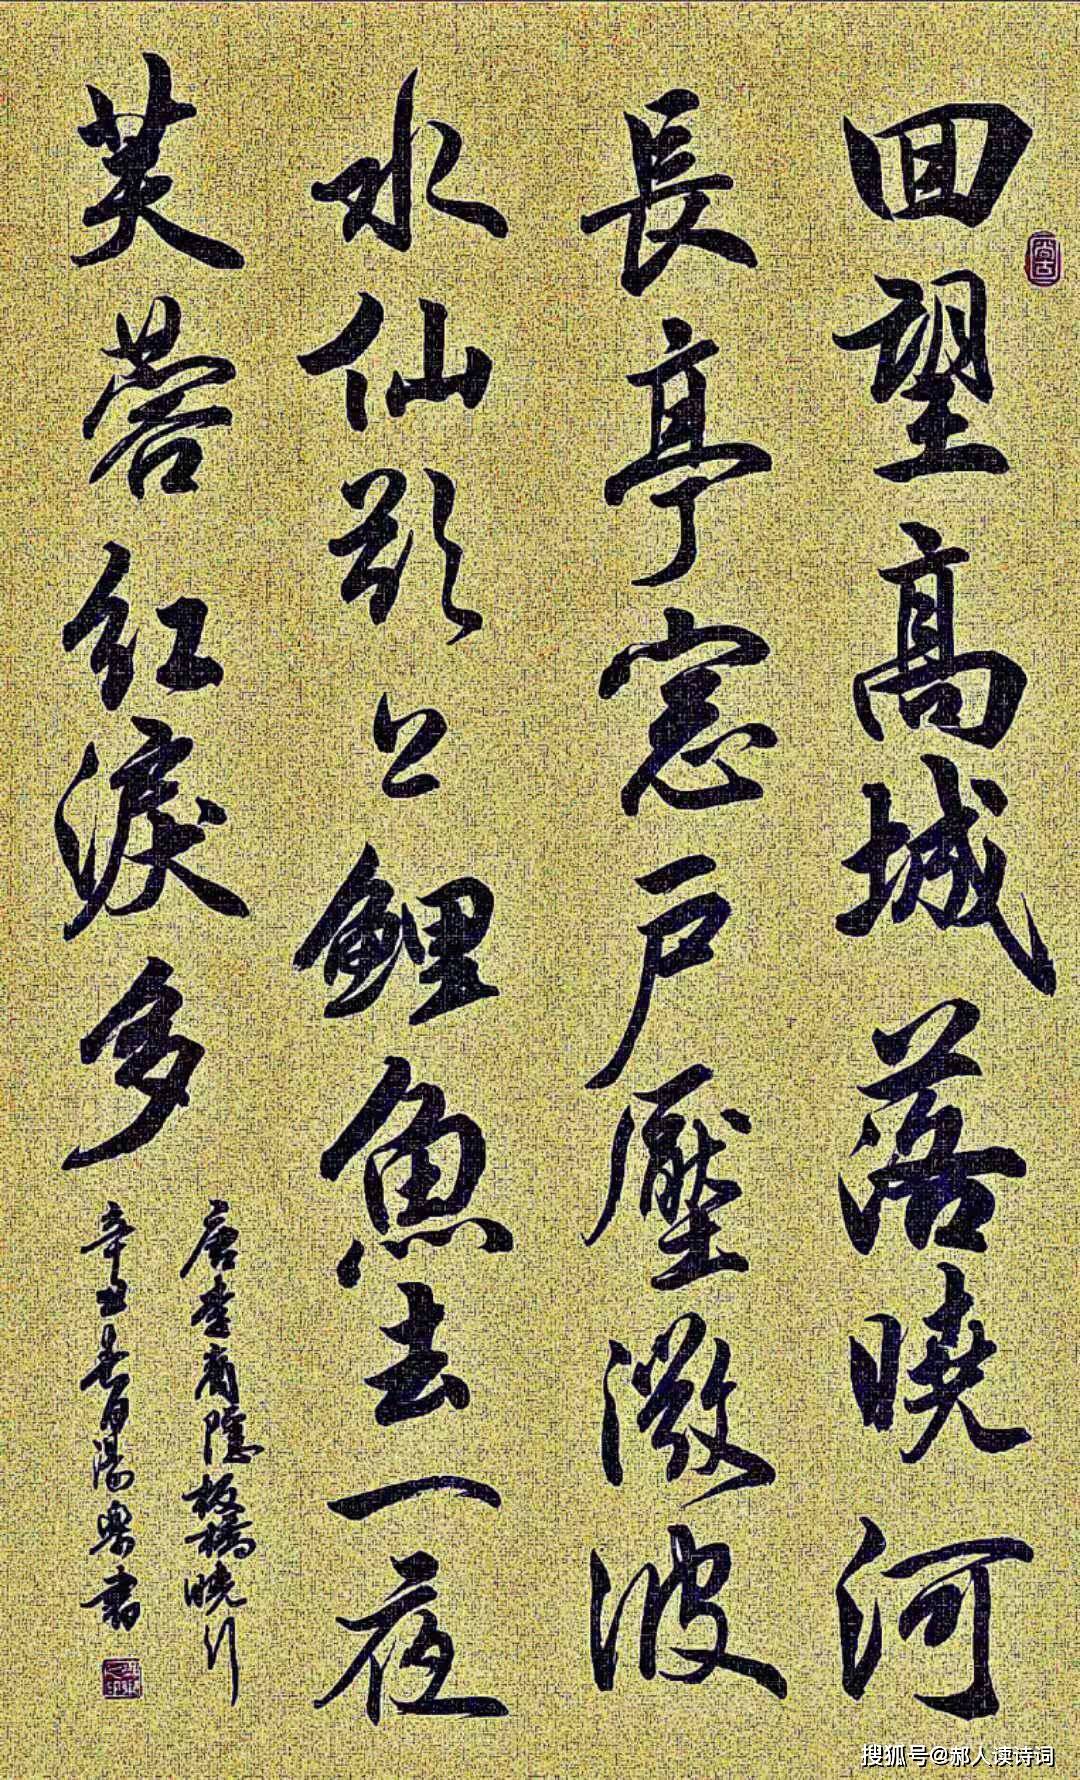 回望高城落曉河
長亭窓戶壓微波
水仙欲上鯉魚去一夜
芙蓉紅淚多
唐李商隱板橋曉行
辛丑 書
尚古
搜狐号@郝人读诗词